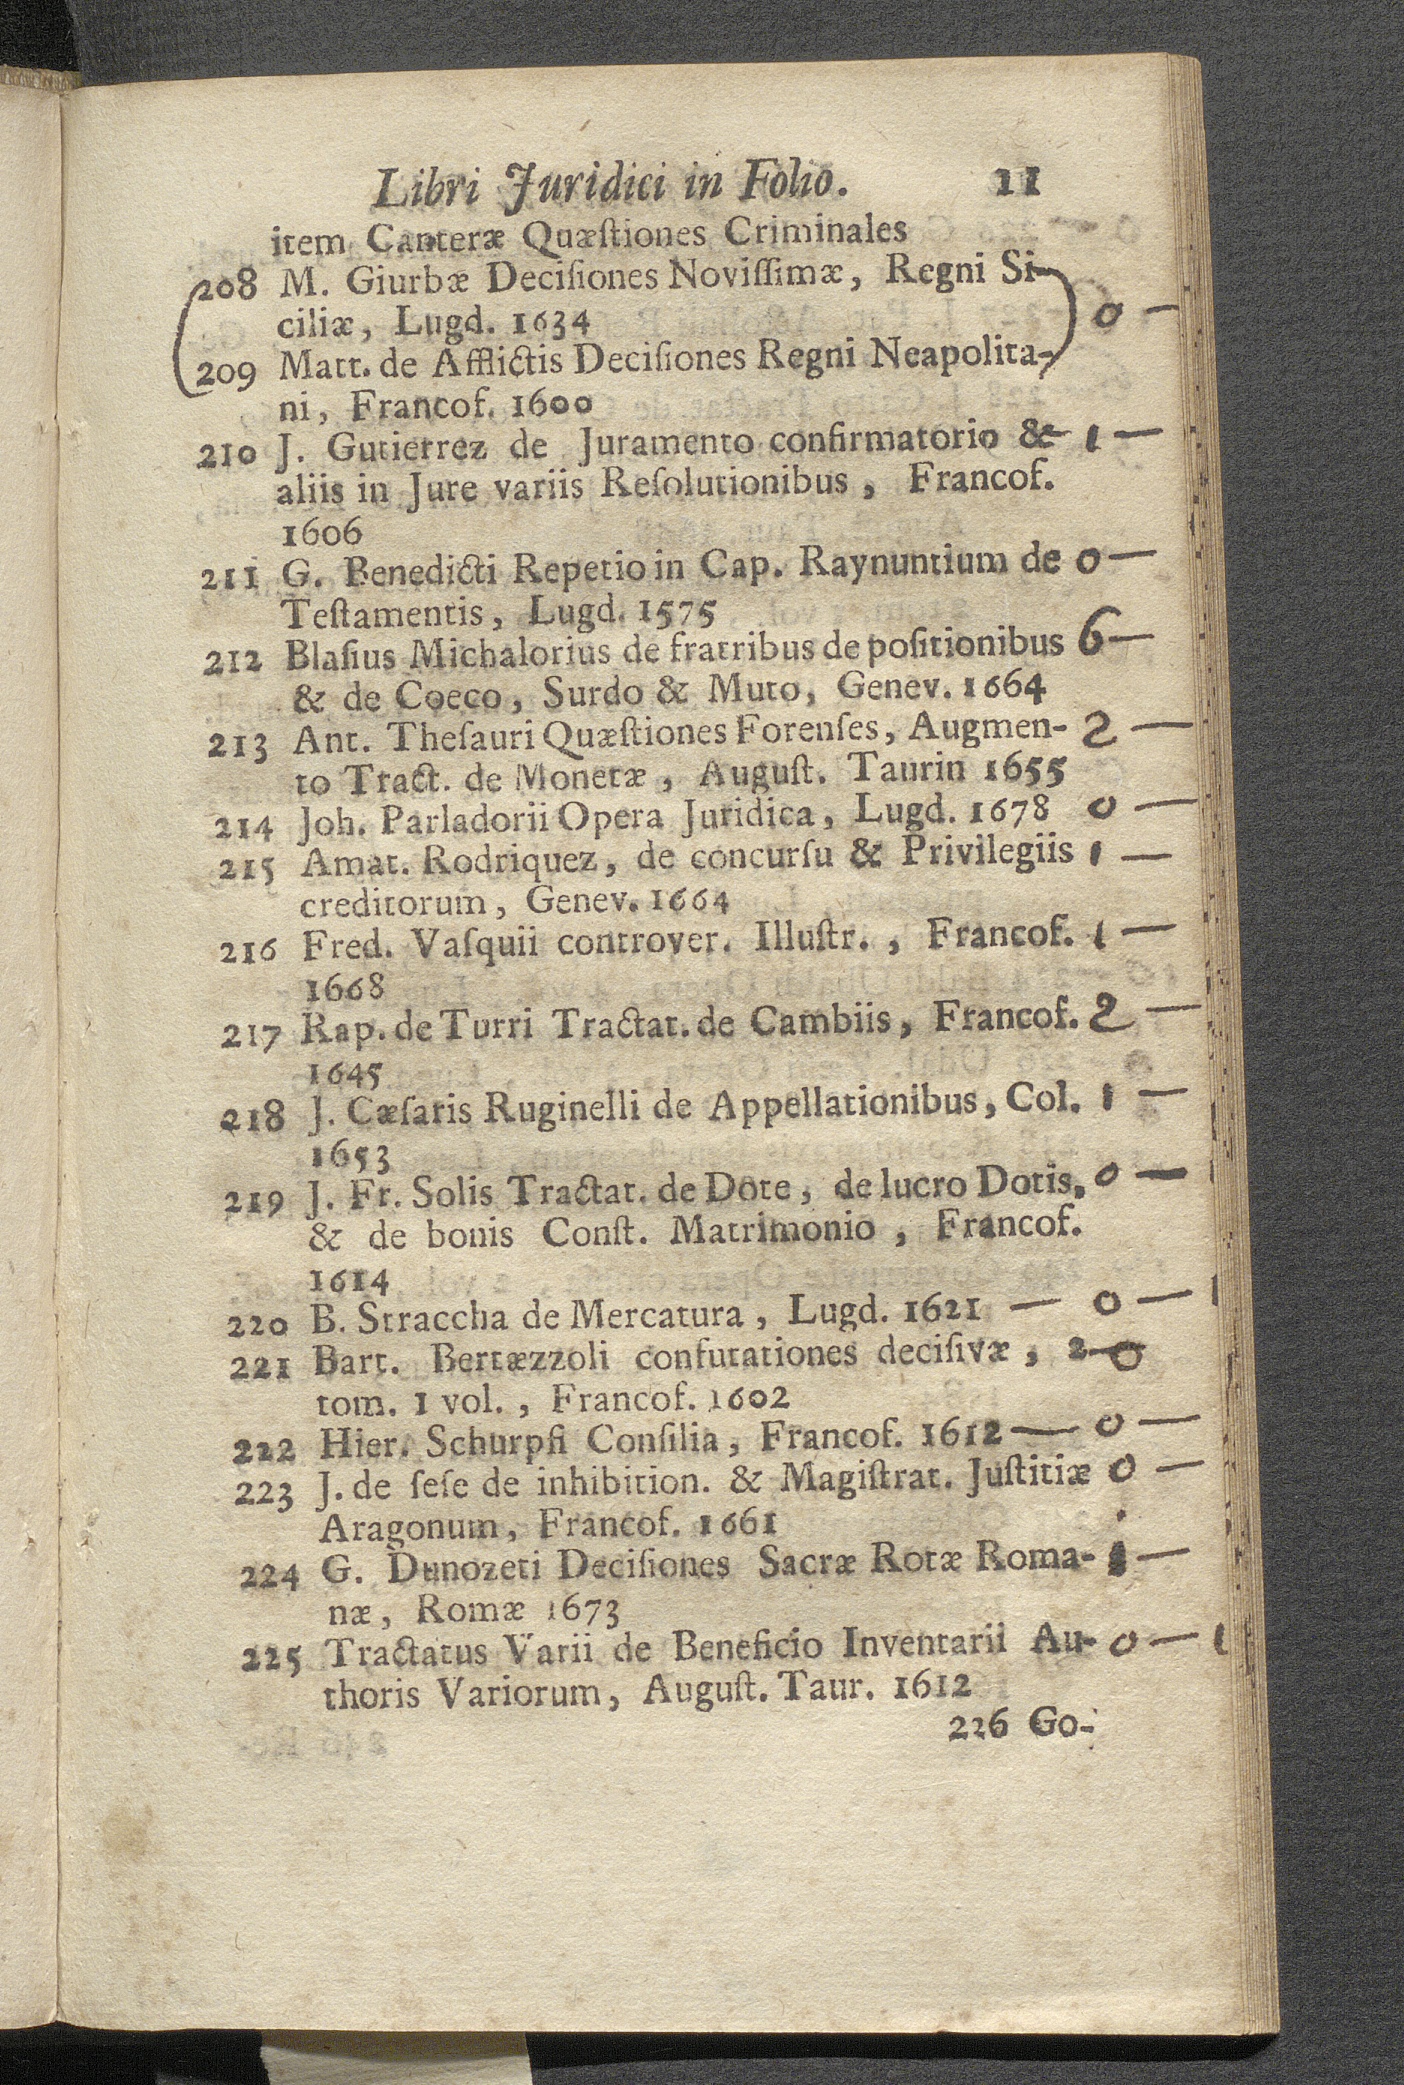 Libri Juridici in Folio. 11
item Canteræ Quæſtiones Criminales
208 M. Giurbæ Deciſiones Noviſſimæ, Regni Si-
ciliæ, Lugd. 1634 0 —
209 Matt. de Afflictis Deciſiones Regni Neapolita-
ni, Francof. 1600
210 J. Gutierrez de Juramento confirmatorio & 1 —
aliis in Jure variis Reſolutionibus, Francof.
1606
211 G. Benedicti Repetio in Cap. Raynuntium de 0 —
Teſtamentis, Lugd. 1575
212 Blaſius Michalorius de fratribus de poſitionibus 6 —
& de Coeco, Surdo & Muto, Genev. 1664
213 Ant. Theſauri Quæſtiones Forenſes, Augmen- 2 —
to Tract. de Monetæ, Auguſt. Taurin 1655
214 Joh. Parladorii Opera Juridica, Lugd. 1678 0 —
215 Amat. Rodriquez, de concurſu & Privilegiis 1 —
creditorum, Genev. 1664
216 Fred. Vaſquii controver. Illuſtr., Francof. 1 —
1668
217 Rap. de Turri Tractat. de Cambiis, Francof. 2 —
1645
218 J. Cæſaris Ruginelli de Appellationibus, Col. 1 —
1653
219 J. Fr. Solis Tractat. de Dote, de lucro Dotis, 0 —
& de bonis Conſt. Matrimonio, Francof.
1614
220 B. Straccha de Mercatura, Lugd. 1621 — 0 —
221 Bart. Bertæzzoli confutationes deciſivæ, 2 0
tom. 1 vol., Francof. 1602
222 Hier. Schurpfi Conſilia, Francof. 1612 — 0 —
223 J. de ſeſe de inhibition. & Magiſtrat. Juſtitiæ 0 —
Aragonum, Francof. 1661
224 G. Dunozeti Deciſiones Sacræ Rotæ Roma- 1 —
næ, Romæ 1673
225 Tractatus Varii de Beneficio Inventarii Au- 0 —
thoris Variorum, Auguſt. Taur. 1612
226 Go-